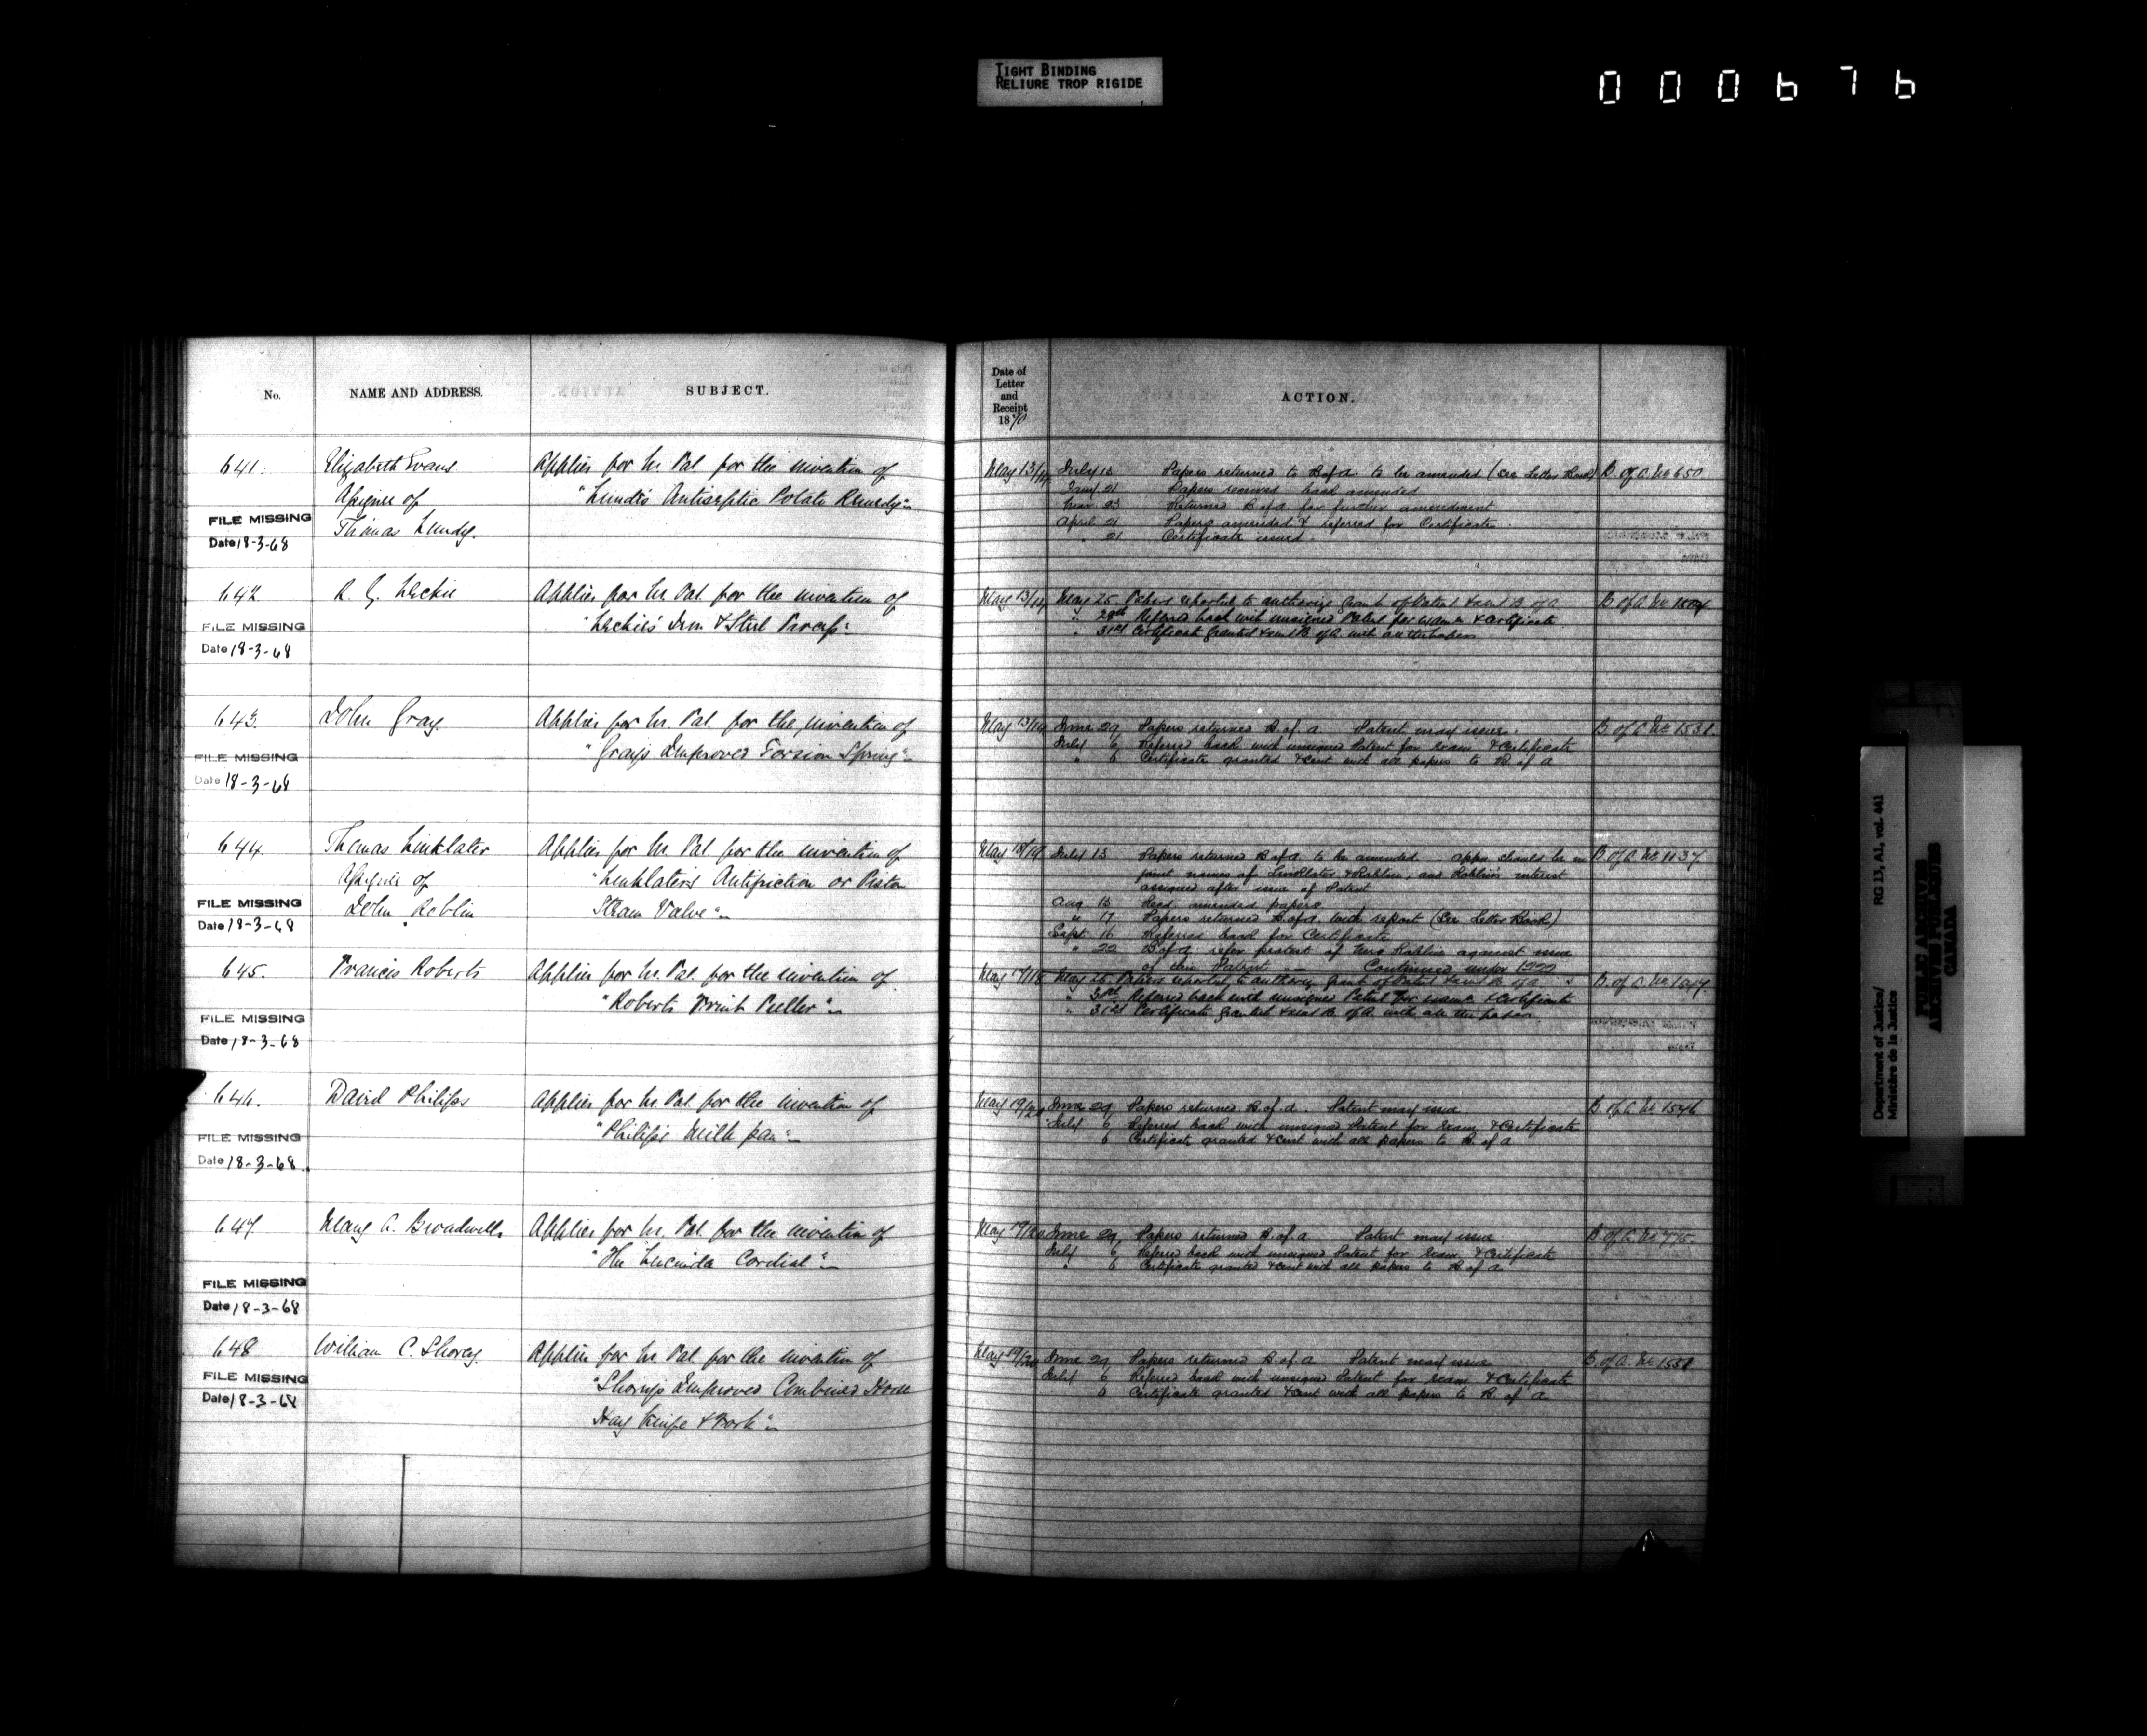 TIGHT BINDING
RELIURE TROP RIGIDE
000676
No. NAME AND ADDRESS. SUBJECT.
Date of Letter and Receipt 1870 ACTION.
641. Elizabeth Evans Applies for Lr. Pat for the invention of
Assignee of "Lundy's Antiseptic Potato Remedy"
FILE MISSING Thomas Lundy.
Date 18-3-68
May 13/14 July 13 Papers returned to B of A. to be amended (See Letter Book) B of A. No 650
21 Papers received back amended
23 Returned B of A for further amendment
April 21 Papers amended & referred for Certificate
" 21 Certificate issued.
642 R. G. Leckie Applies for Lr Pat for the invention of
FILE MISSING "Leckie's Iron & Steel Process"
Date 18-3-68
May 13/14 May 25 Papers reported to authorize grant of Patent & sent B. of A B of A No
" 28th Referred back with unsigned Patent for exam & Certificate
" 31st Certificate granted & sent B. of A. with all the papers
643. John Gray. Applies for Lr. Pat for the invention of
FILE MISSING "Gray's Improved Torsion Spring"
Date 18-3-68
May 13/14 June 29 Papers returned B. of A. Patent may issue. B of A No 1531
July 6 Referred back with unsigned Patent for exam & Certificate
" 6 Certificate granted & sent with all papers to B. of A
644. Thomas Linklater Applies for Lr Pat for the invention of
Assignee of "Linklater's Antifriction or Piston
FILE MISSING John Roblin Steam Valve"
Date 18-3-68
May 18/19 July 13 Papers returned B of A. to be amended appn should be in B. of A. No 1137
joint names of Linklater & Roblin, and Roblin's interest
assigned after issue of Patent
Aug 15 Recd amended papers
" 17 Papers returned B. of A. with report (See Letter Book)
Sept 16 Referred back for Certificate
" 22 B of A. refer protest of Roblin against issue
of this Patent — Continued under
645. Francis Roberts Applies for Lr. Pat. for the invention of
"Roberts Puller"
FILE MISSING
Date 18-3-68
May 17/18 May 25 Papers reported to authorize grant of Patent & sent B of A B. of A. No
" 30th Referred back with unsigned Patent for exam & Certificate
" 31st Certificate granted & sent B. of A. with all the papers
646. David Philips Applies for Lr Pat. for the invention of
FILE MISSING "Philips's Milk pan"
Date 18-3-68
May 19/20 June 29 Papers returned B. of A. Patent may issue B of A No 1546
July 6 Referred back with unsigned Patent for exam & Certificate
6 Certificate granted & sent with all papers to B. of A
647. Mary A. Broadwells Applies for Lr. Pat. for the invention of
"The Lucinda Cordial"
FILE MISSING
Date 18-3-68
May 19/20 June 29 Papers returned B. of A Patent may issue B of A. No 775
July 6 Referred back with unsigned Patent for exam & Certificate
" 6 Certificate granted & sent with all papers to B of A
648 William C. Shorey. Applies for Lr Pat. for the invention of
FILE MISSING "Shorey's Improved Combined Horse
Date 18-3-68 Hay Knife & Fork"
May 19/20 June 29 Papers returned B. of A Patent may issue B. of A. No 1551
July 6 Referred back with unsigned Patent for exam & Certificate
6 Certificate granted & sent with all papers to B. of A
Department of Justice/ RG 13, A1, vol. 441
Ministère de la Justice
PUBLIC ARCHIVES
ARCHIVES PUBLIQUES
CANADA